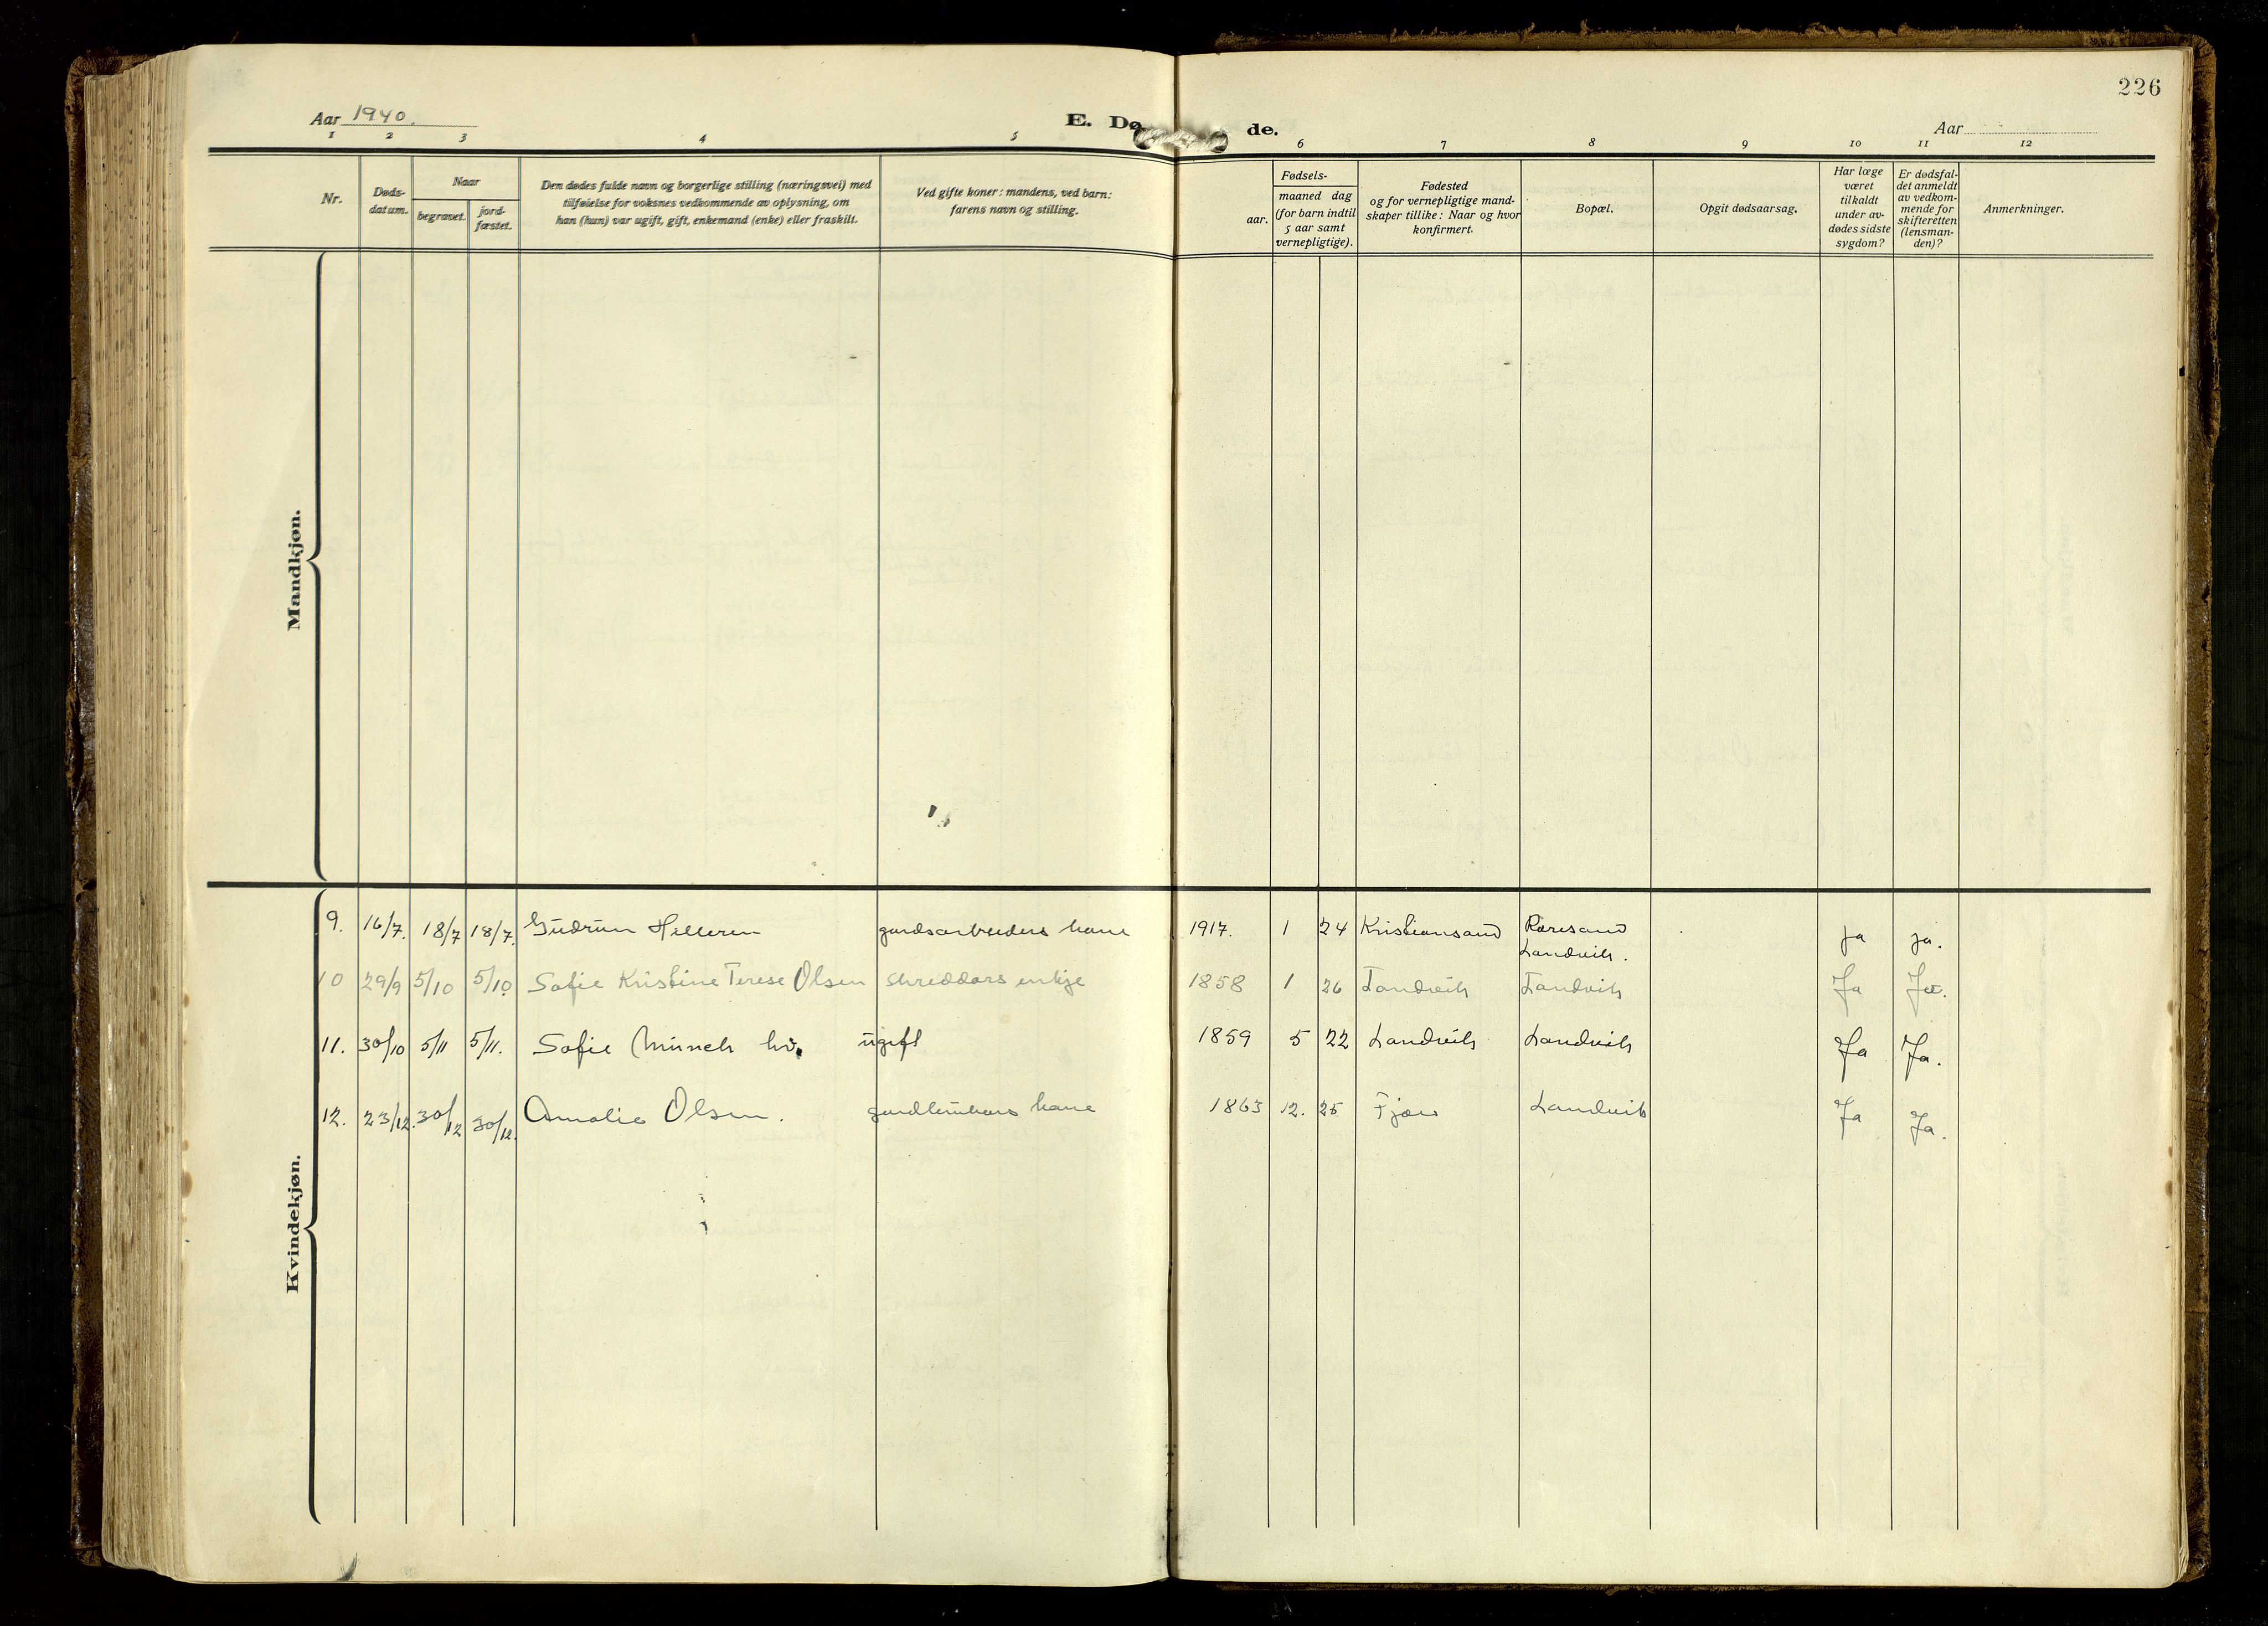 226
Aar 1940.
E. Dø de.
Aar
1 2 3 4 5 6 7 8 9 10 11 12
Nr.
Døds-
datum.
Naar
begravet.
jord-
fæstet.
Den dødes fulde navn og borgerlige stilling (næringsvei) med
tilføielse for voksnes vedkommende av oplysning, om
han (hun) var ugift, gift, enkemand (enke) eller fraskilt.
Ved gifte koner: mandens, ved barn:
farens navn og stilling.
Fødsels-
aar.
maaned dag
(for barn indtil
5 aar samt
vernepligtige).
Fødested
og for vernepligtige mand-
skaper tillike: Naar og hvor
konfirmert.
Bopæl.
Opgit dødsaarsag.
Har læge
været
tilkaldt
under av-
dødes sidste
sygdom?
Er dødsfal-
det anmeldt
av vedkom-
mende for
skifteretten
(lensman-
den)?
Anmerkninger.
Mandkjøn.
Kvindekjøn.
9. 16/7. 18/7 18/7. Gudrun Helleren gardsarbeiders kone 1917. 1 24 Kristiansand Roresand ja ja.
Landvik.
10 29/9 5/10 5/10 Sofie Kristine Terese Olsen skreddars enkje 1858 1 26 Landvik Landvik Ja Ja.
11. 30/10 5/11 5/11. Sofie Münch ugift 1859 5 22 Landvik Landvik Ja Ja.
12. 23/12. 30/12 30/12. Amalie Olsen. kone 1863 12. 25 Fjære Landvik Ja Ja.